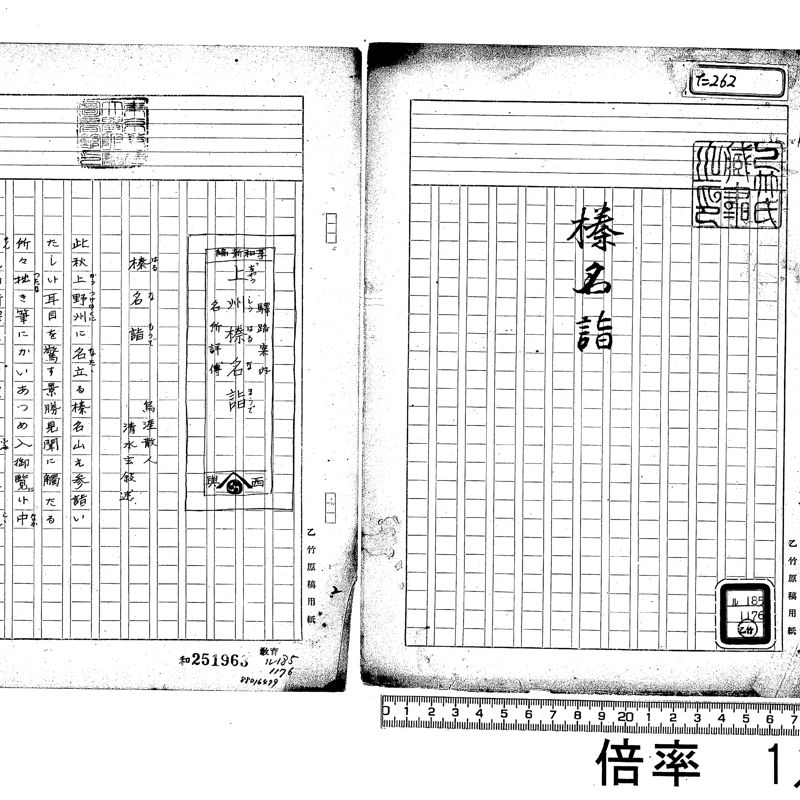 T=262
乙竹氏
蔵書
之印
榛名詣
乙竹原稿用紙
ル 185
1176
乙竹
享和新編
驛路案内
上州榛名詣
名所評傳
西
興
榛名詣
はるなもうで
烏涯散人
清水玄叙述
此秋上野州に名立る榛名山え参詣い
たしい耳目を驚す景勝見聞に觸たる
所々拙き筆にかいあつめ入御覧い中
乙竹原稿用紙
和251963
教育
ル185
1176
0 1 2 3 4 5 6 7 8 9 20 1 2 3 4 5 6 7
倍率 1